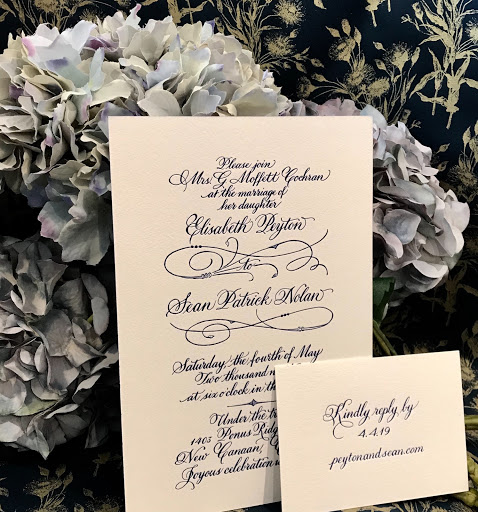 Please join
Mrs. G. Moffett Cochran
at the marriage of
her daughter
Elisabeth Peyton
to
Sean Patrick Nolan
Saturday the fourth of May
Two thousand
at six o'clock in the
Under the
1403 Ponus Ridg
New Canaan,
Joyous celebration
Kindly reply by
4.4.19
peytonandsean.com